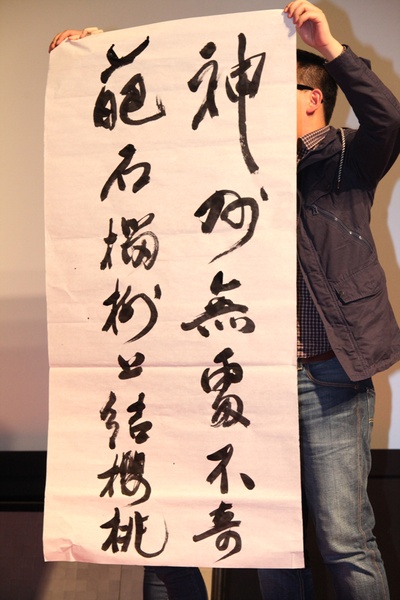 神州無處不奇
葩石榴樹上結櫻桃